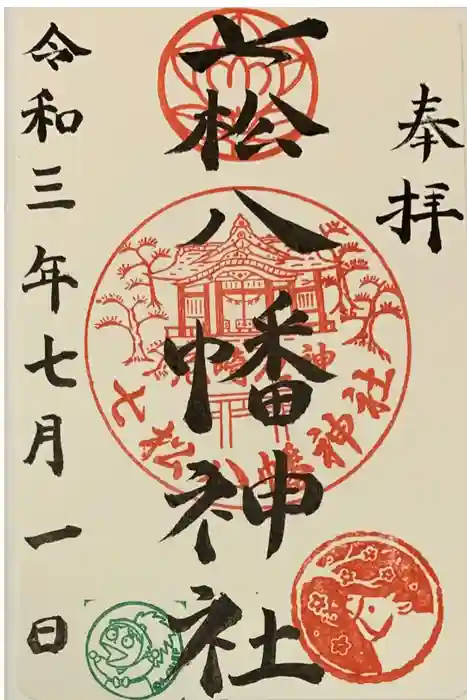 奉拝
七松八幡神社
尼崎 神
七松八幡神社
令和三年七月一日